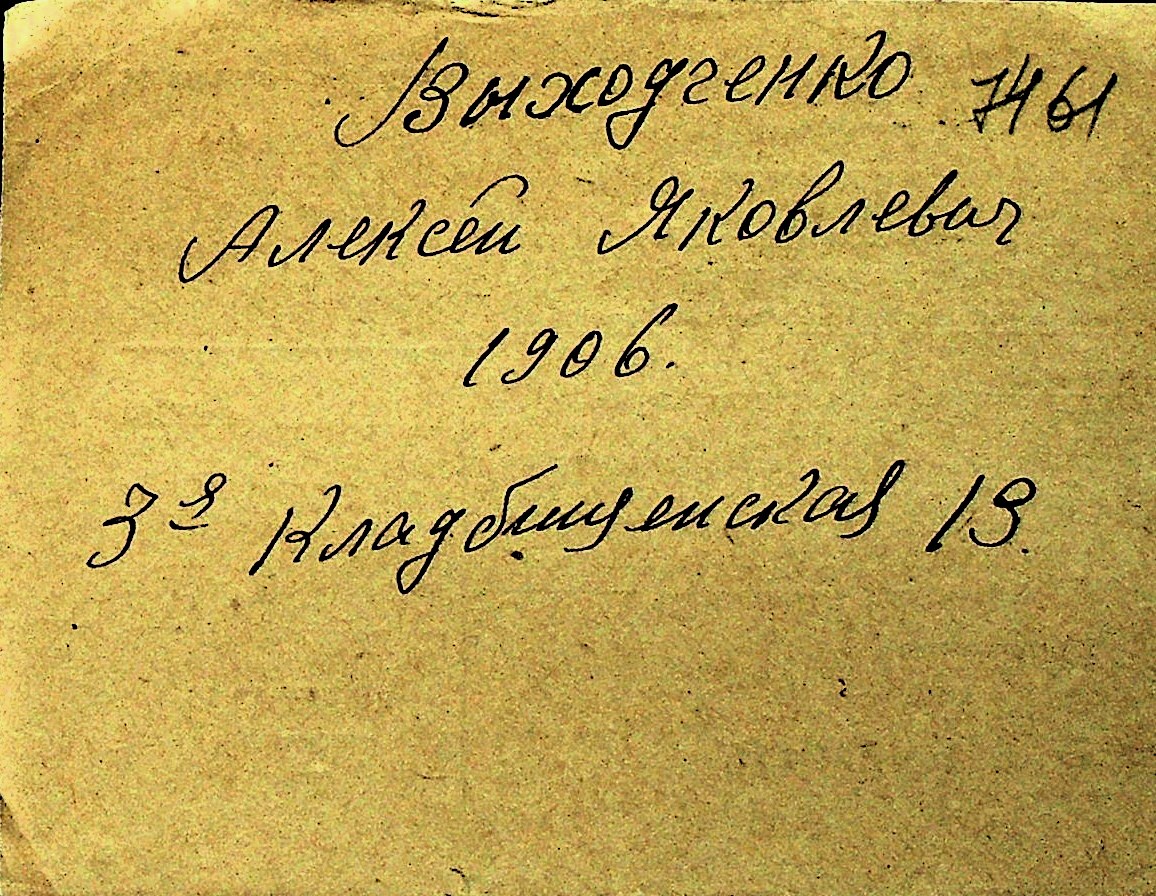 Выходченко 7461
Алексей Яковлевич
1906.
3я Кладбищенская 13.